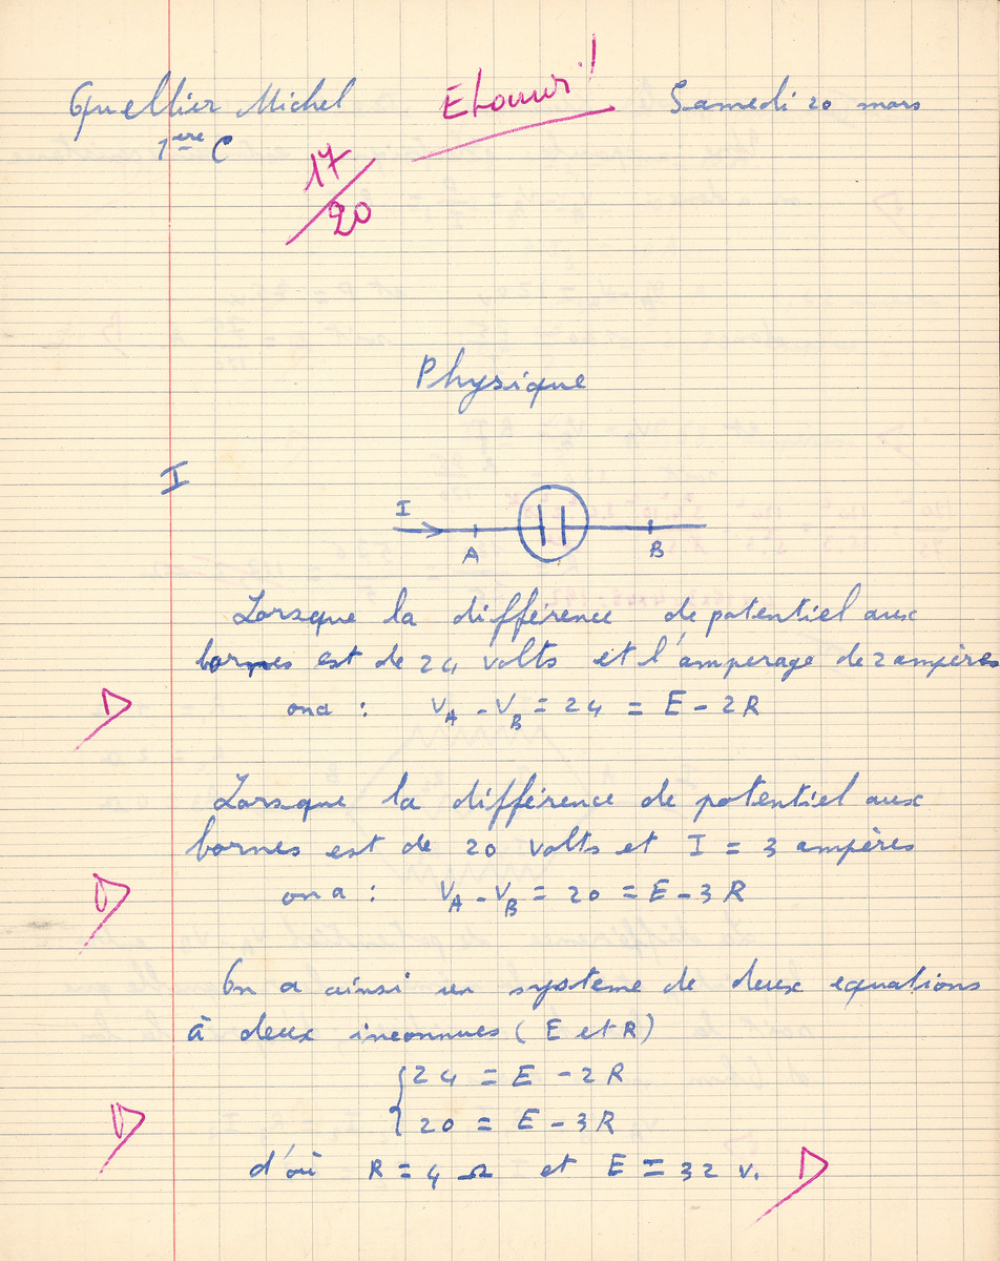 Quellier Michel
Samedi 20 mars
1ère C
17/20
Physique
I
I
A B
Lorsque la différence de potentiel aux
bornes est de 24 volts et l'amperage de 2 ampères
on a : VA - VB = 24 = E - 2R
Lorsque la différence de potentiel aux
bornes est de 20 volts et I = 3 ampères
on a : VA - VB = 20 = E - 3R
On a ainsi un système de deux equations
à deux inconnues ( E et R)
24 = E - 2R
20 = E - 3R
d'où R = 4 Ω et E = 32 v.